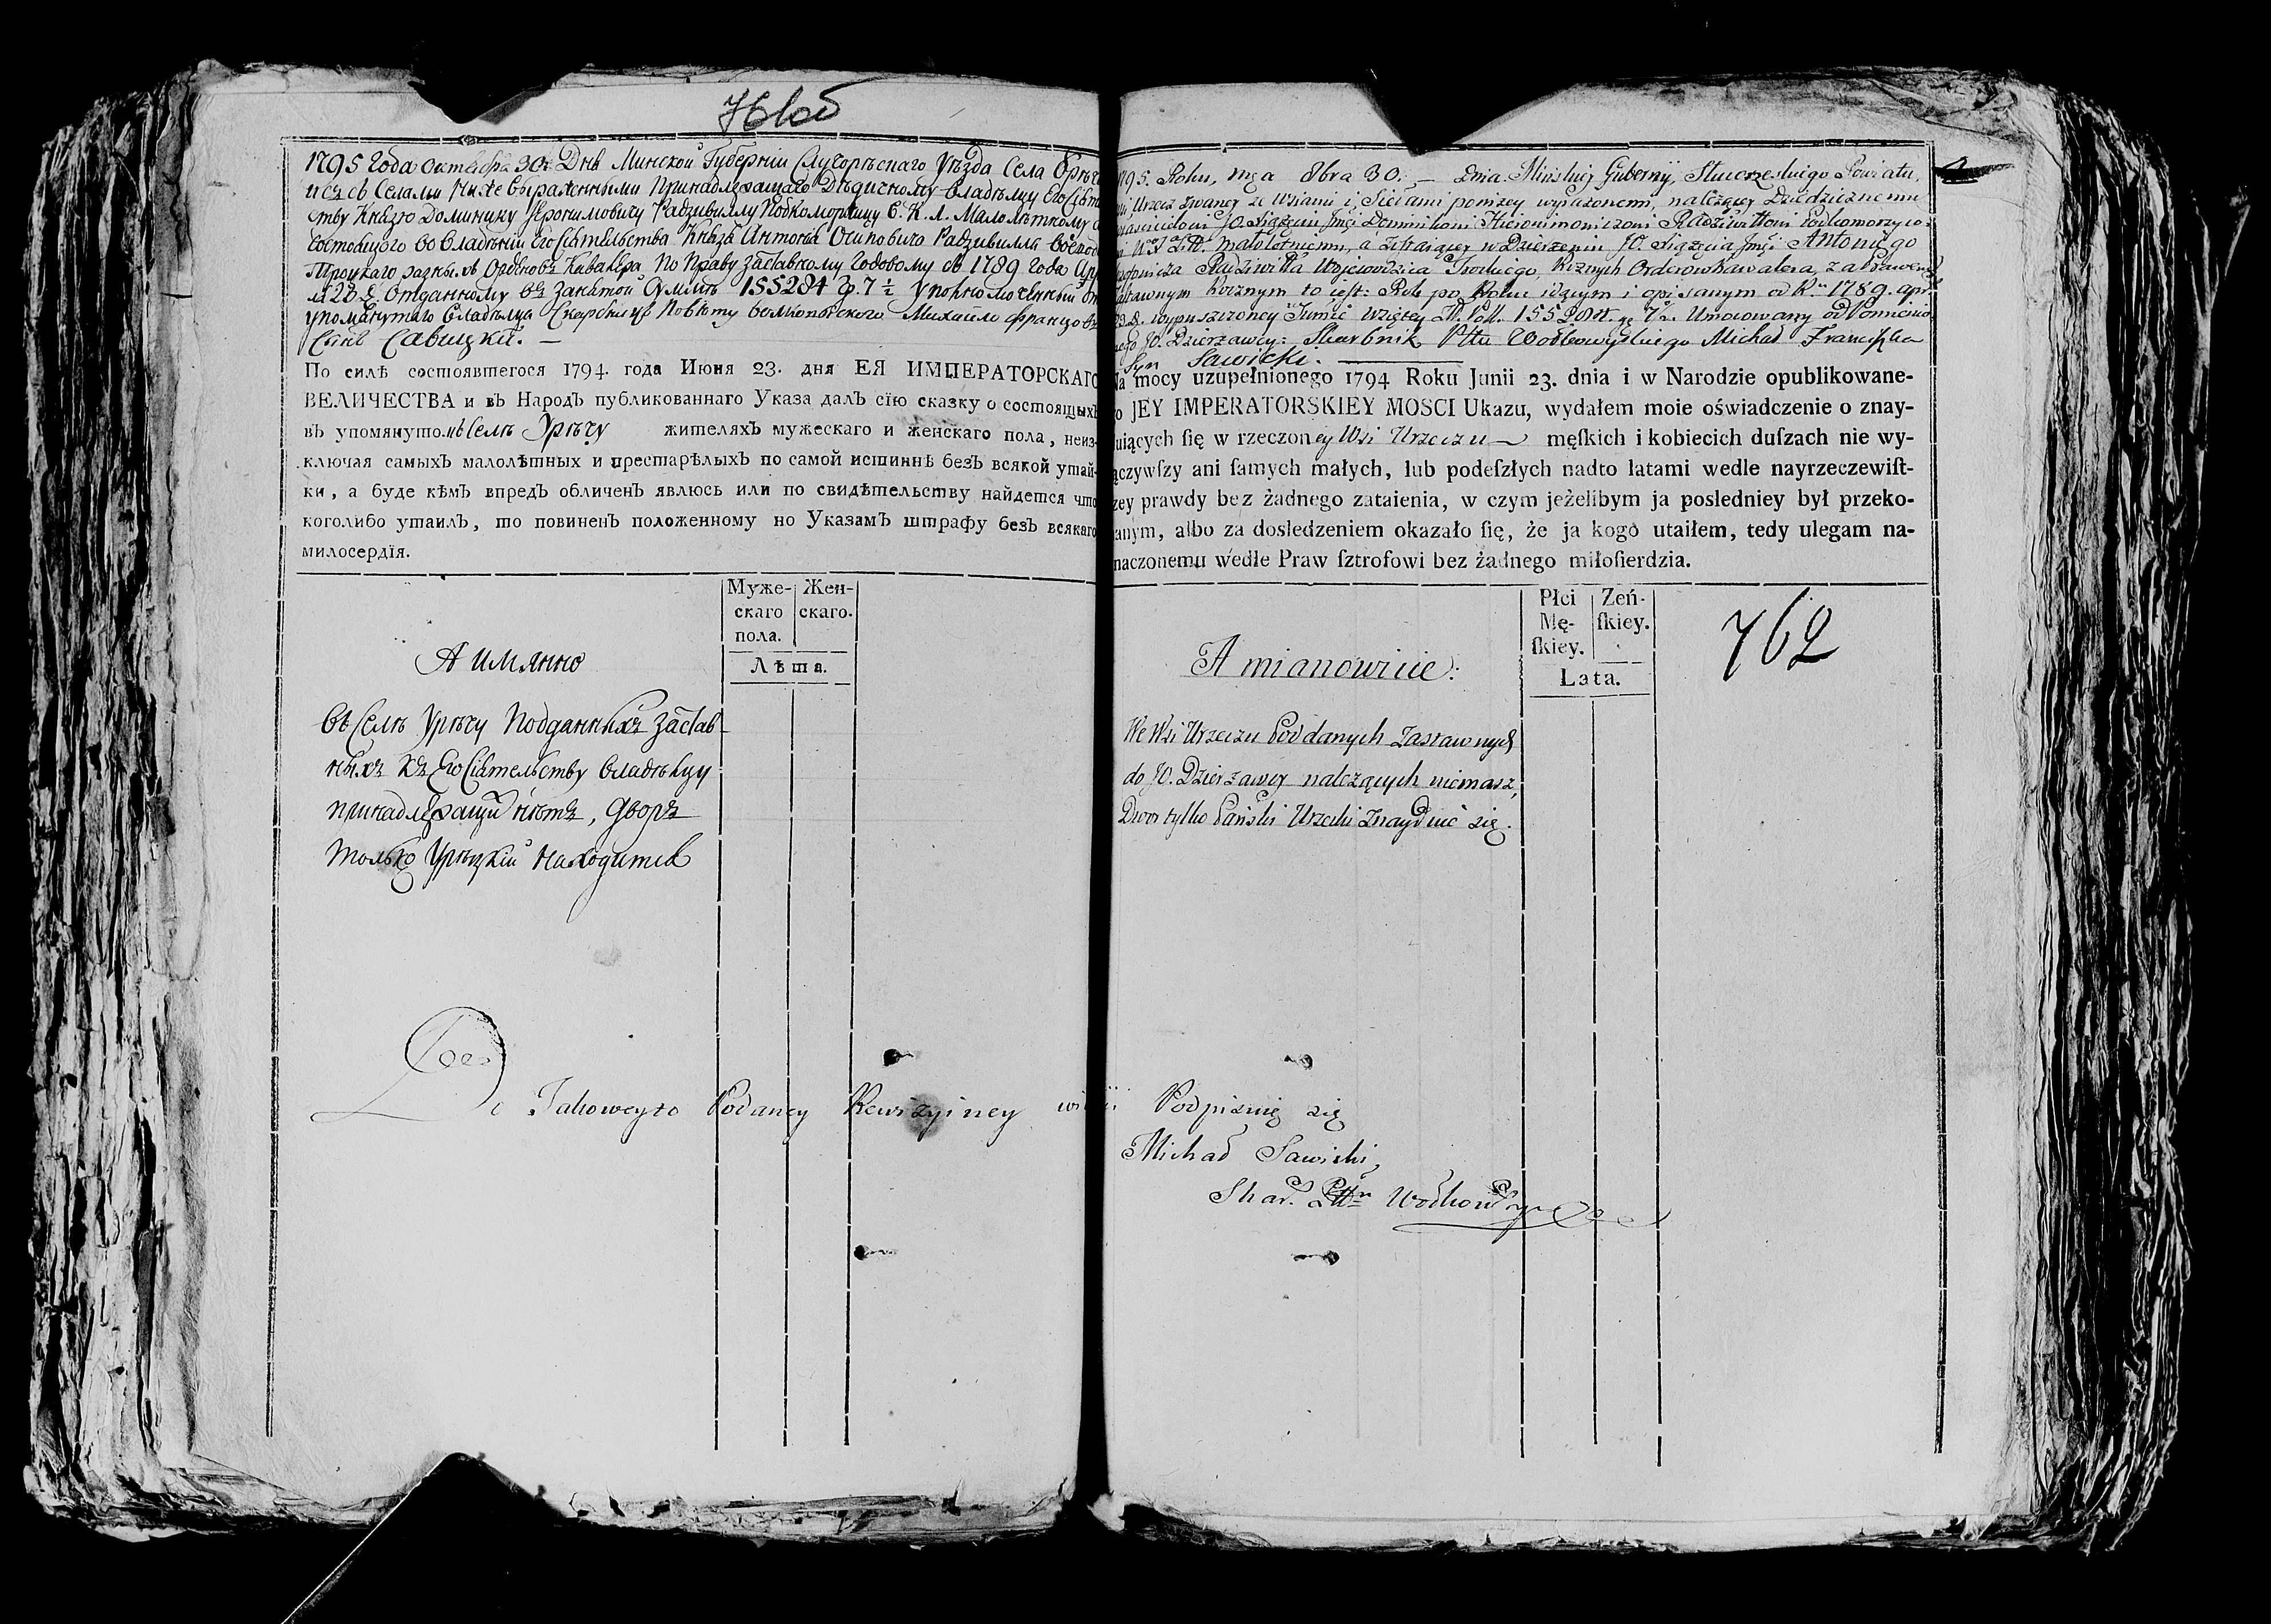 761об
1795 года октября 30 Дня Минской Губерніи Слуцорѣскаго уѣзда Села
съ Селами ниже выраженными принадлежащаго Дѣдичному Владѣльцу Его Сіятель
ству Князю Доминику Іеронимовичу Радзивиллу Подкоморжицу В. К. Л. Малолѣтному
состоящаго во Владѣніи Его Сіятельства Князя Антонія Осиповича Радзивилла
Троцкаго разныхъ Орденовъ Кавалера по праву заставному годовому съ 1789 года
отданному въ занятой Суммѣ 155284 7 ½ уполномоченный
упомянутаго Владѣльца Скарбникъ Повѣту Михаило
Сынъ Савицкий. —
По силѣ состоявшегося 1794. года Июня 23. дня ЕЯ ИМПЕРАТОРСКАГО
ВЕЛИЧЕСТВА и въ Народъ публикованнаго Указа далъ сїю сказку о состоящыхъ
въ упомянутомъ Селѣ Урѣчу жителяхъ мужескаго и женскаго пола, неиз-
ключая самыхъ малолѣтныхъ и престарѣлыхъ по самой истиннѣ безъ всякой утай-
ки, а буде кѣмъ впредъ обличенъ явлюсь или по свидѣтельству найдется что
коголибо утаилъ, то повиненъ положенному по Указамъ штрафу безъ всякаго
милосердїя.
Муже- Жен-
скаго скаго.
пола.
Лѣта.
А имянно
Въ Селѣ Урѣчу Подданныхъ застав
ныхъ къ Его Сіятельству Владѣльцу
принадлежащи нѣтъ, Дворъ
только Урѣцкій находится
1795. Roku, mca 8bra 30. — dnia. Mińskiey Gubernij, Słuckiego Powiatu,
Urzecz zwaney ze Wsiami i Siołami poniżey wyrażonemi, należącey Dziedzicznemu
JO. Xiążęciu Jmci Dominikowi Hieronimowiczowi Radziwiłłowi Podkomorzycowi
W. X. Litt. małoletniemu, a zostaiącey w Dzierżeniu JO. Xiążęcia Jmci Antoniego
Radziwiłła Woiewodzica Trockiego, Rożnych Orderow Kawalera, za Prawem
Zastawnym Rocznym to iest: Rok po Roku idącym i opisanym od R. 1789. apr.
wypuszczoney Summie wziętey 155284. 7½. Umocowany od Pomienio
nego JO. Dzierżawcy: Skarbnik Pttu Wołkowyskiego Michał Franciszka
Syn Sawicki. —
Na mocy uzupełnionego 1794 Roku Junii 23. dnia i w Narodzie opublikowane-
go JEY IMPERATORSKIEY MOSCI Ukazu, wydałem moie oświadczenie o znay-
duiących ſię w rzeczoney Wsi Urzeczu — męſkich i kobiecich duſzach nie wy-
łączywſzy ani ſamych małych, lub podeſzłych nadto latami wedle nayrzeczewiſt-
ſzey prawdy bez żadnego zataienia, w czym jeżelibym ja posledniey był przeko-
nanym, albo za dosledzeniem okazało ſię, że ja kogo utaiłem, tedy ulegam na-
znaczonemu wedle Praw ſztrofowi bez żadnego miłoſierdzia.
Płci Zeń-
Mę- ſkiey.
ſkiey.
Lata.
762
A mianowicie:
We Wsi Urzeczu Poddanych Zastawnych
do JO. Dzierżawcy należących niemasz,
Dwor tylko Pański Urzecki Znayduie się.
Do Takoweyto Podaney Rewizyiney Podpisuię się
Michał Sawicki
Skar. Pttu Wołkowy